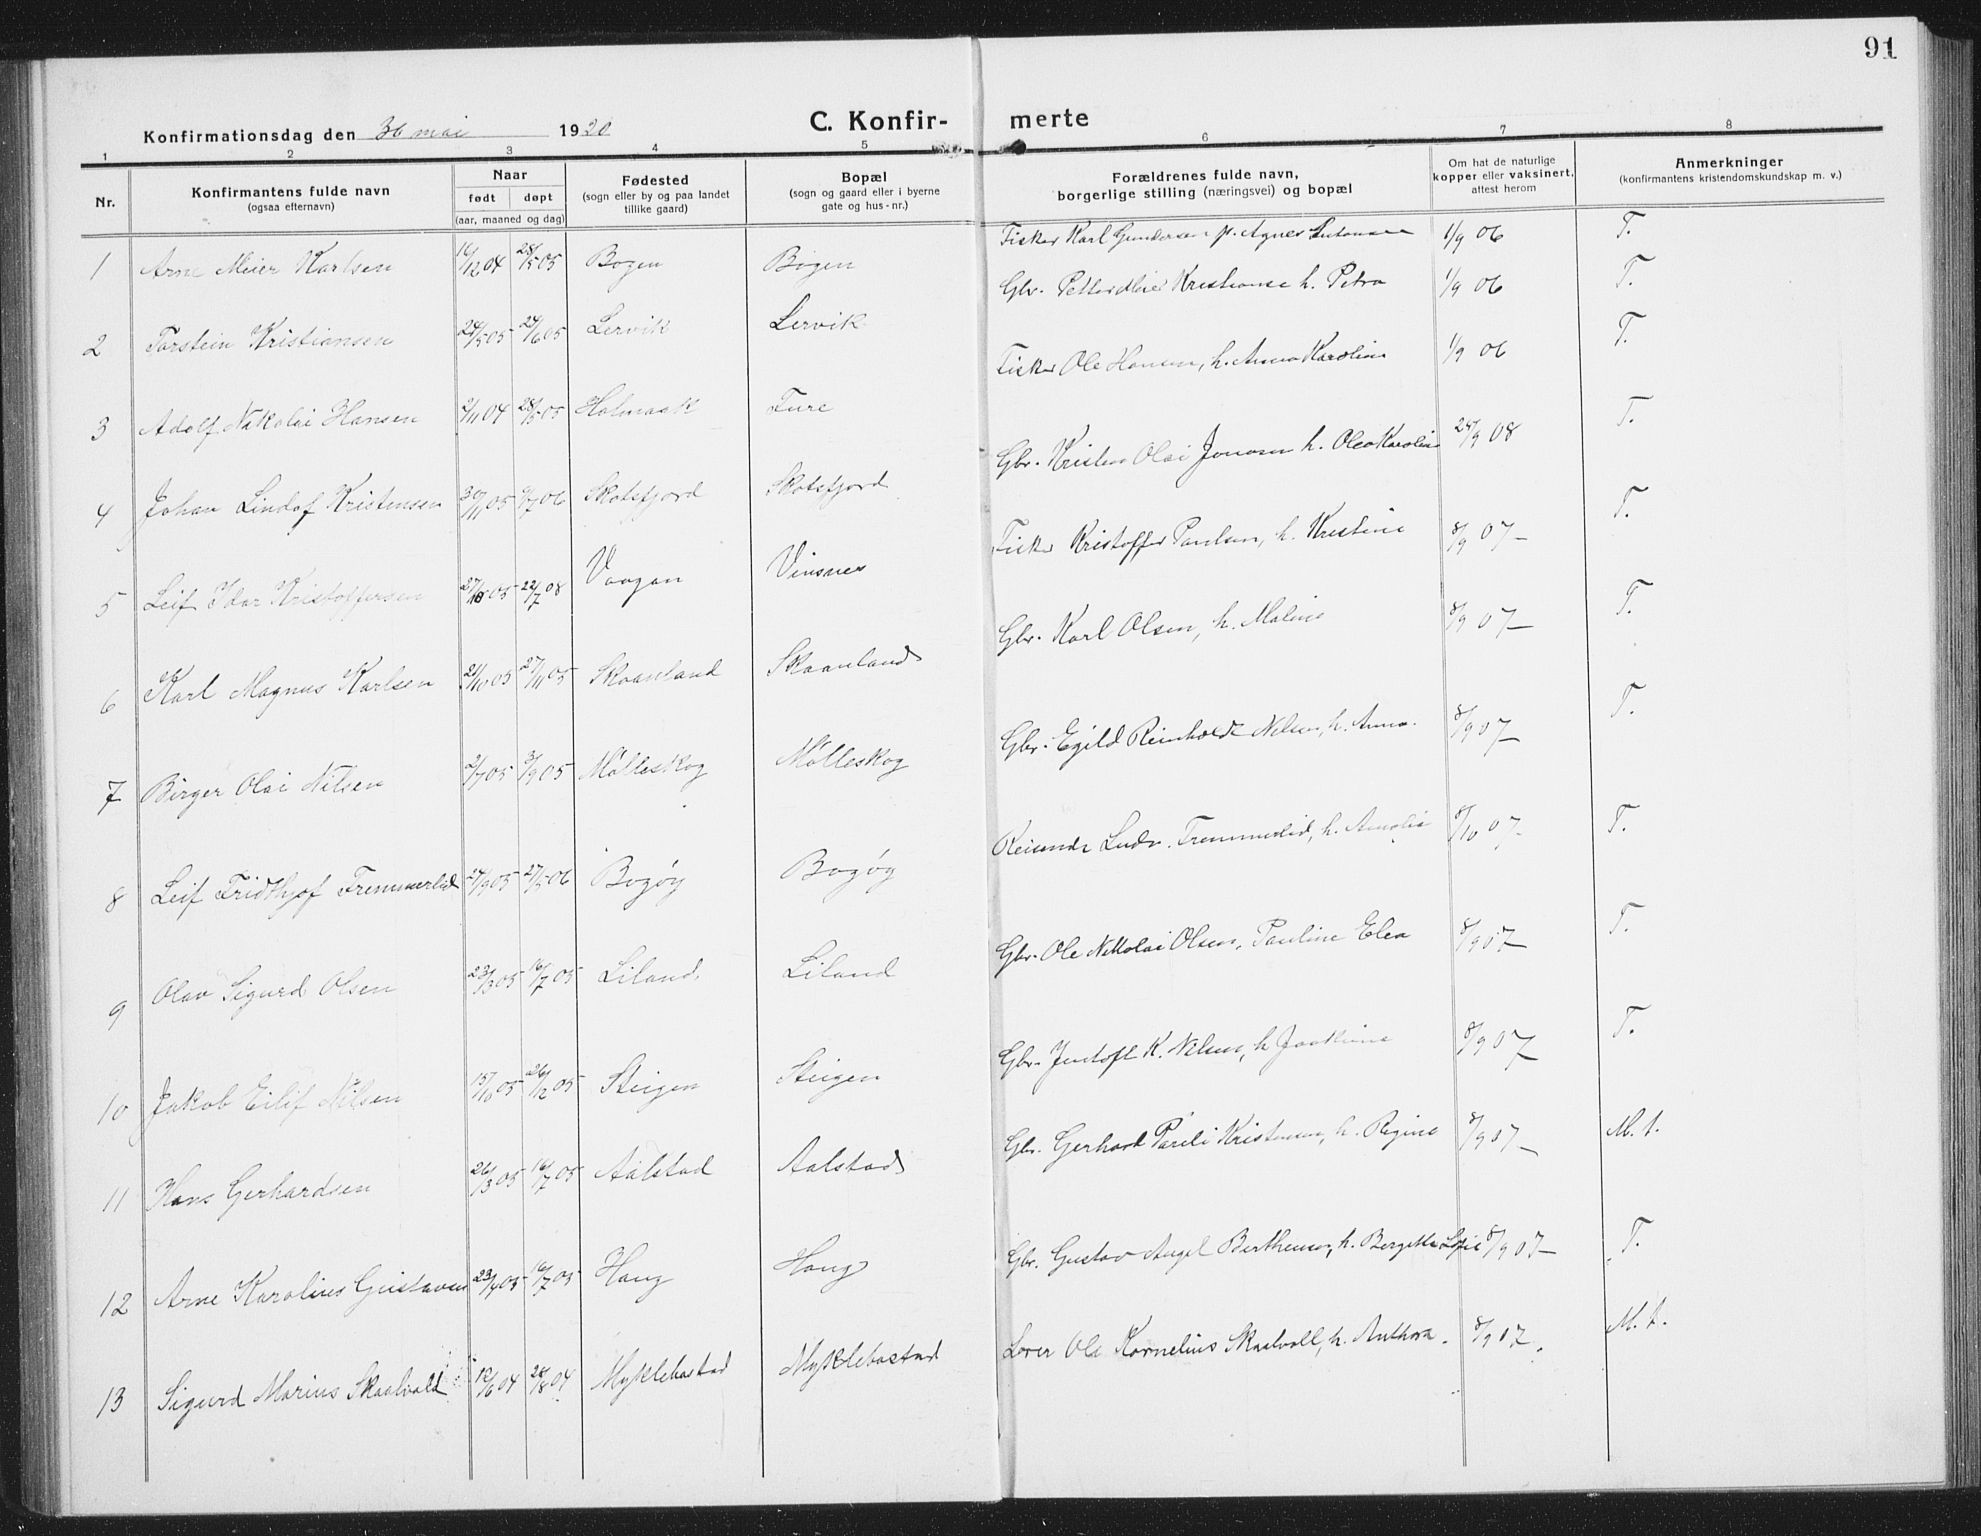 91
C. Konfirmerte
Konfirmationsdag den 30 mai 1920
1 2 3 4 5 6 7 8
Nr.
Konfirmantens fulde navn (ogsaa efternavn)
Naar født døpt (aar, maaned og dag)
Fødested (sogn eller by og paa landet tillike gaard)
Bopæl (sogn og gaard eller i byerne gate og hus-nr.)
Forældrenes fulde navn, borgerlige stilling (næringsvei) og bopæl
Om hat de naturlige kopper eller vaksinert, attest herom
Anmerkninger (konfirmantens kristendomskundskap m. v.)
1 Arne Meier Karlsen 16/12 04 28/5 05 Bogen Bogen Fisker Karl Gundersen Agnes 1/9 06 T.
2 Torstein Kristiansen 24/5 05 24/6 05 Lervik Lervik Gbr. Kristianse h. Petra 1/9 06 T.
3 Adolf Nikolai Hansen 2/11 04 28/5 05 Holmaak Fure Fisker Ole Hansen, h. Anna Karoline 1/9 06 T.
4 Johan Lindof Kristensen 30/11 05 /7 06 Skotsfjord Skotsfjord Gbr. Kristen Olai Jonasen h. Olea Karoline 24/9 08 T.
5 Leif Idar Kristoffersen 27/10 05 22/7 08 Vaagan Vinsnes Fisker Kristoffer Paulsen, h. Kristine 8/9 07 T.
6 Karl Magnus Karlsen 21/10 05 27/11 05 Skaanland Skaanland Gbr. Karl Olsen, h. Maline 8/9 07 T.
7 Birger Olai Nilsen 2/7 05 3/9 05 Mølleskog Mølleskog Gbr. Egild Reinholdt Nilsen, h. Anna. 8/9 07 T.
8 Leif Fridthjof Tremmerlid 24/9 05 27/5 06 Bogøy Bogøy Reisende Ludv. Tremmerlid, h. Amalie 8/10 07 T.
9 Olav Sigurd Olsen 23/3 05 16/7 05 Liland Liland Gbr. Ole Nikolai Olsen, Pauline Elea 8/9 07 T.
10 Jakob Eilif Nilsen 15/10 05 26/12 05 Steigen Steigen Gbr. Jentoft K. Nilsen, h. Joakime 8/9 07 T.
11 Hans Gerhardsen 26/3 05 16/7 05 Aalstad Aalstad Gbr. Gerhard Pareli Kristensen, h. Regine 8/9 07 M. t.
12 Arne Karolius Gustavsen 23/4 05 16/7 05 Haug Haug Gbr. Gustav Angel Berthensen, h. Bergitte Lofie 8/9 07 T.
13 Sigurd Marius Skaalvold 12/6 04 28/8 04 Myklebostad Myklebostad Ole Kornelius Skaalvoll, h. Anthora. 8/9 07. M. t.